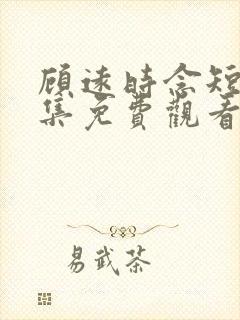 顾远時念短
集免費觀看
易武茶